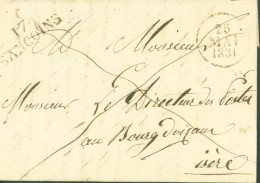 17
SANCOINS
25
MAI
1831
A Monsieur
Monsieur Le Directeur des Postes
au Bourg doisans
isère